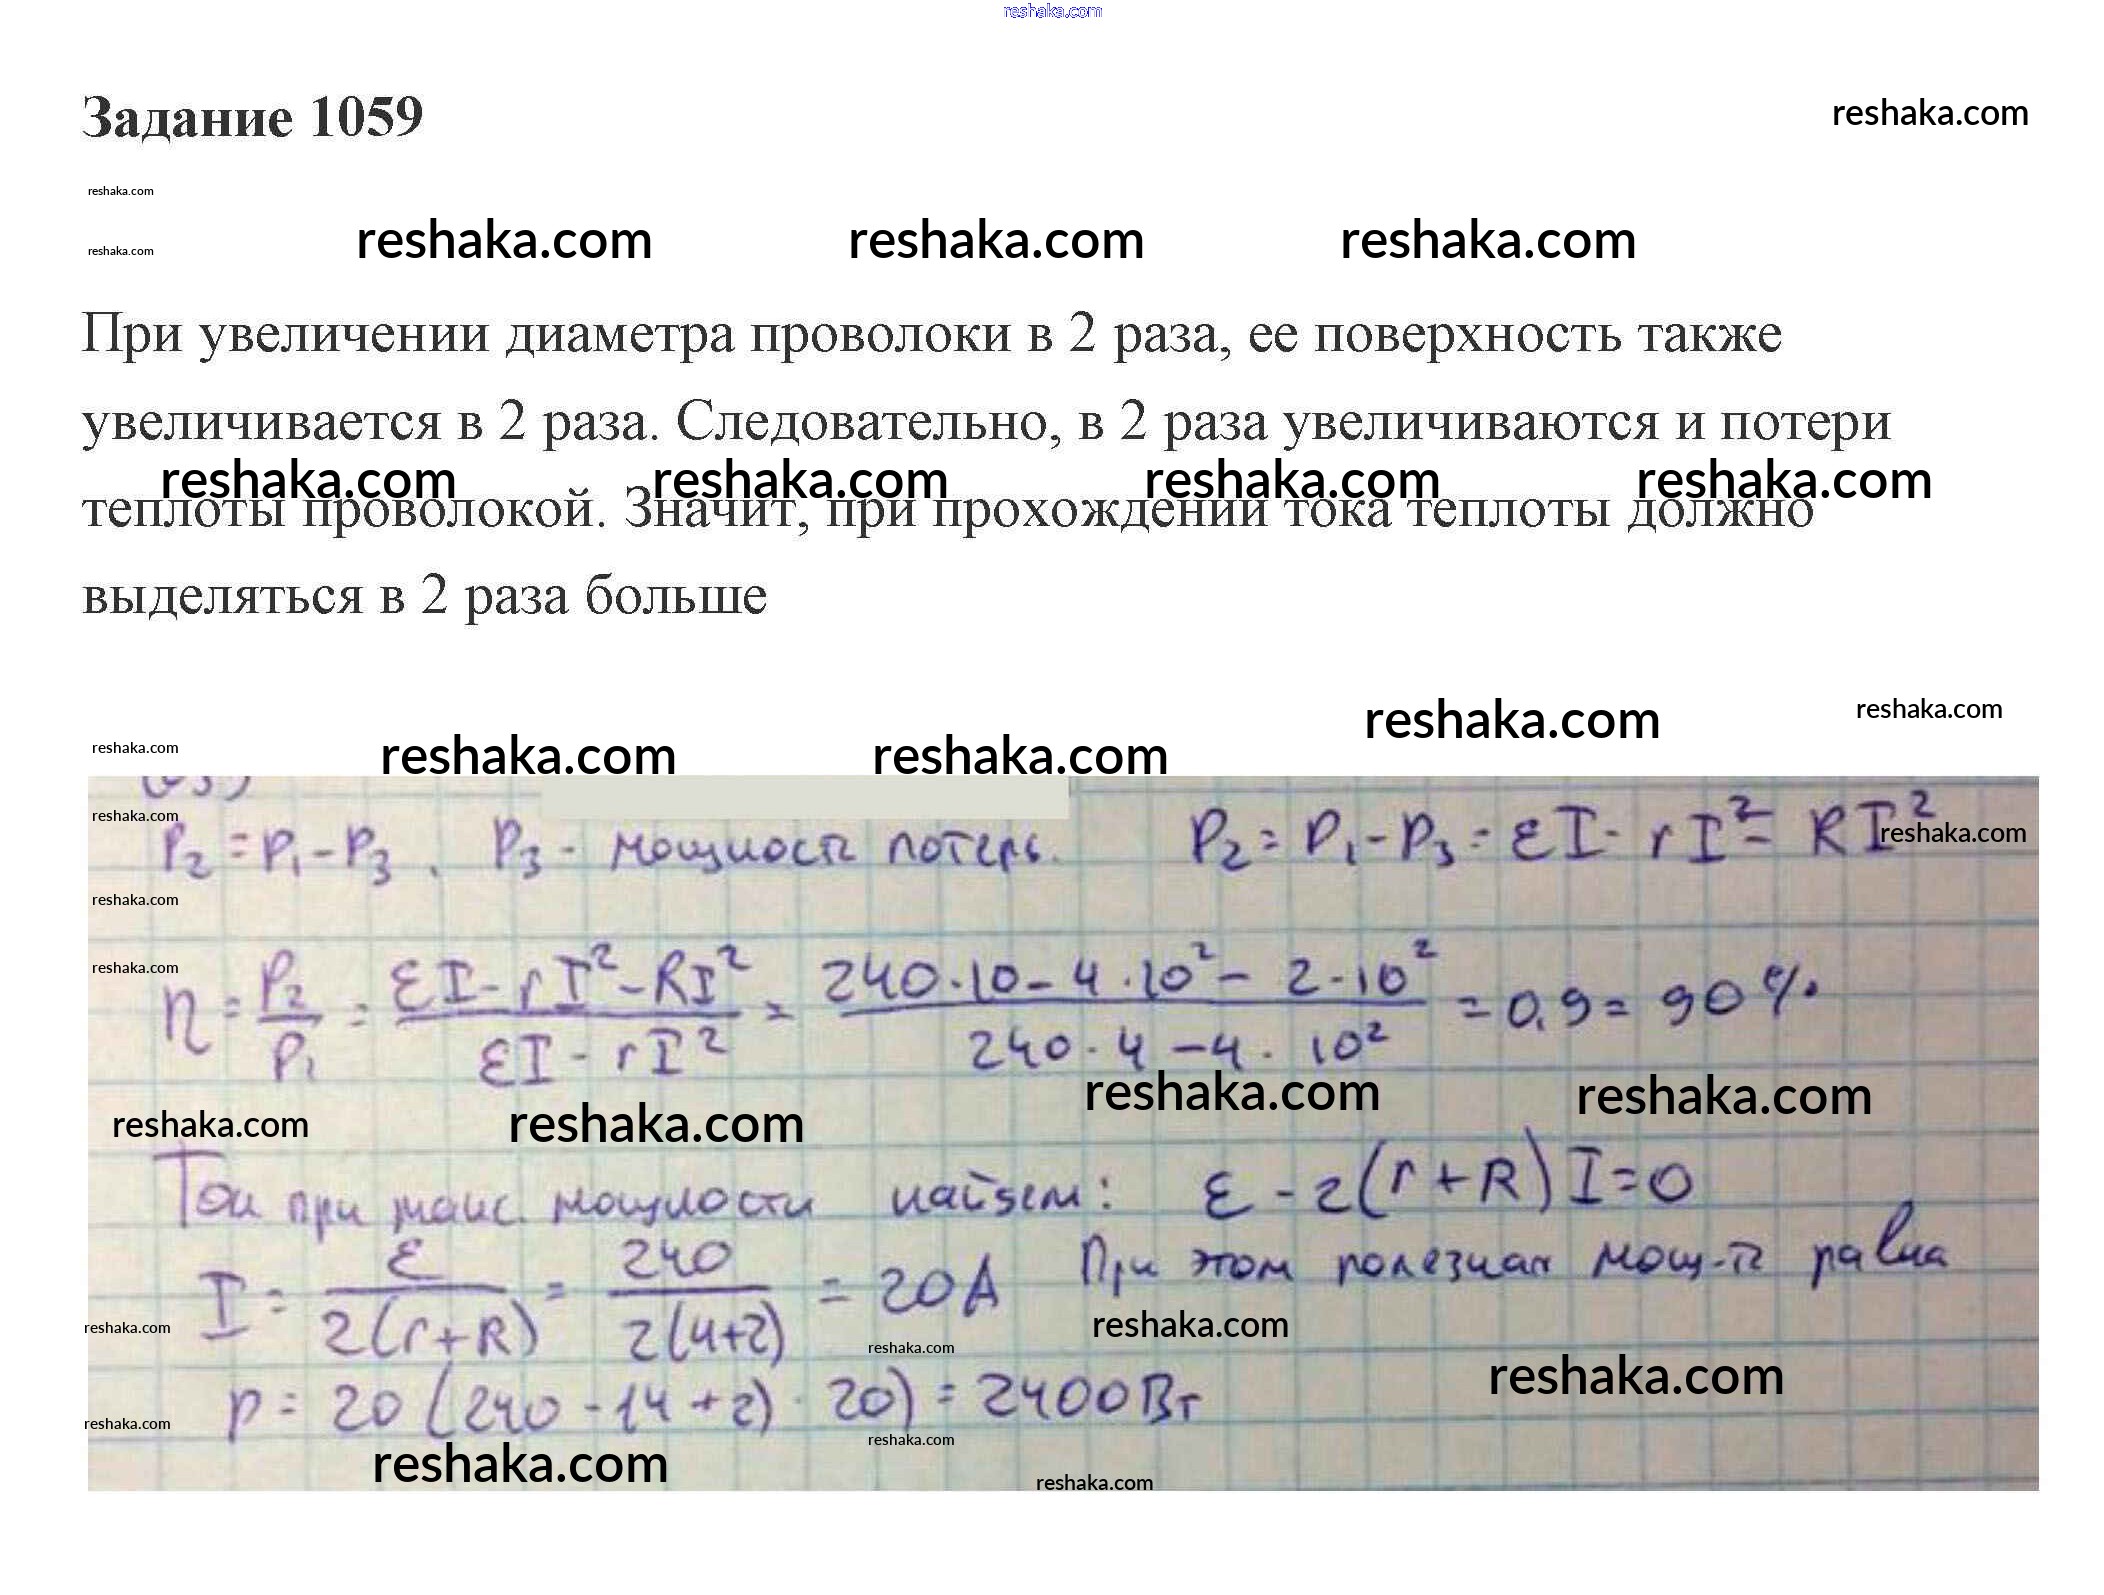 reshaka.com
Задание 1059
reshaka.com
reshaka.com
reshaka.com reshaka.com reshaka.com
reshaka.com
При увеличении диаметра проволоки в 2 раза, ее поверхность также
увеличивается в 2 раза. Следовательно, в 2 раза увеличиваются и потери
reshaka.com reshaka.com reshaka.com reshaka.com
теплоты проволокой. Значит, при прохождении тока теплоты должно
выделяться в 2 раза больше
reshaka.com reshaka.com
reshaka.com reshaka.com reshaka.com
reshaka.com
P₂ = P₁ - P₃, P₃ - мощность потерь. P₂ = P₁ - P₃ = εI - rI² - RI²
reshaka.com
reshaka.com
reshaka.com
η = P₂/P₁ = (εI - rI² - RI²)/(εI - rI²) = (240·10 - 4·10² - 2·10²)/(240·4 - 4·10²) = 0,9 = 90%
reshaka.com reshaka.com
reshaka.com reshaka.com
Ток при макс. мощности найдем: ε - 2(r + R)I = 0
I = ε/(2(r+R)) = 240/(2(4+2)) = 20A При этом полезная мощ-ть равна
reshaka.com reshaka.com
reshaka.com reshaka.com
P = 20(240 - 14 + 2)·20) = 2400Вт
reshaka.com reshaka.com
reshaka.com reshaka.com